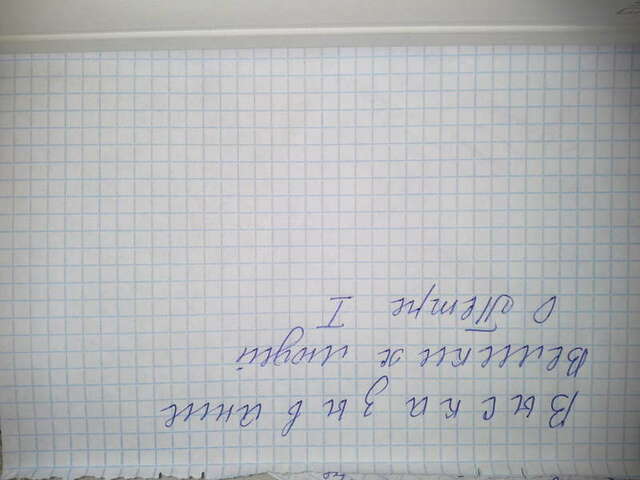 Высказывание
Великих людей
О Петре I